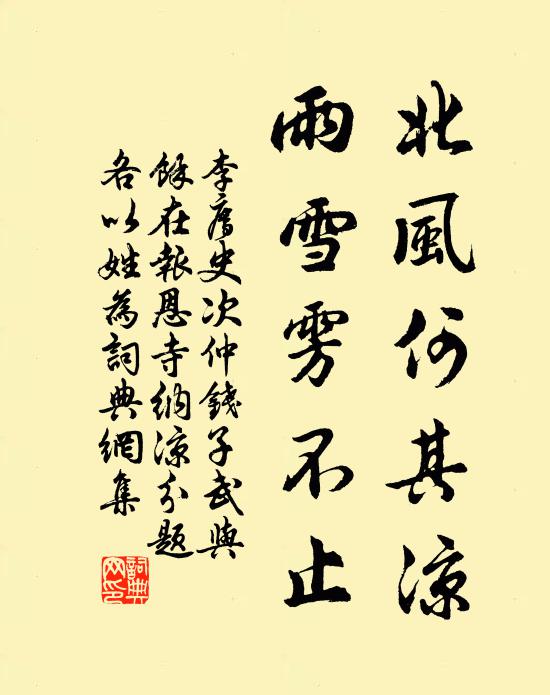 北風何其涼
雨雪雱不止
李廌史次仲錢子武與
餘在報恩寺納涼分題
各以姓為詞典網集
詞典
网印